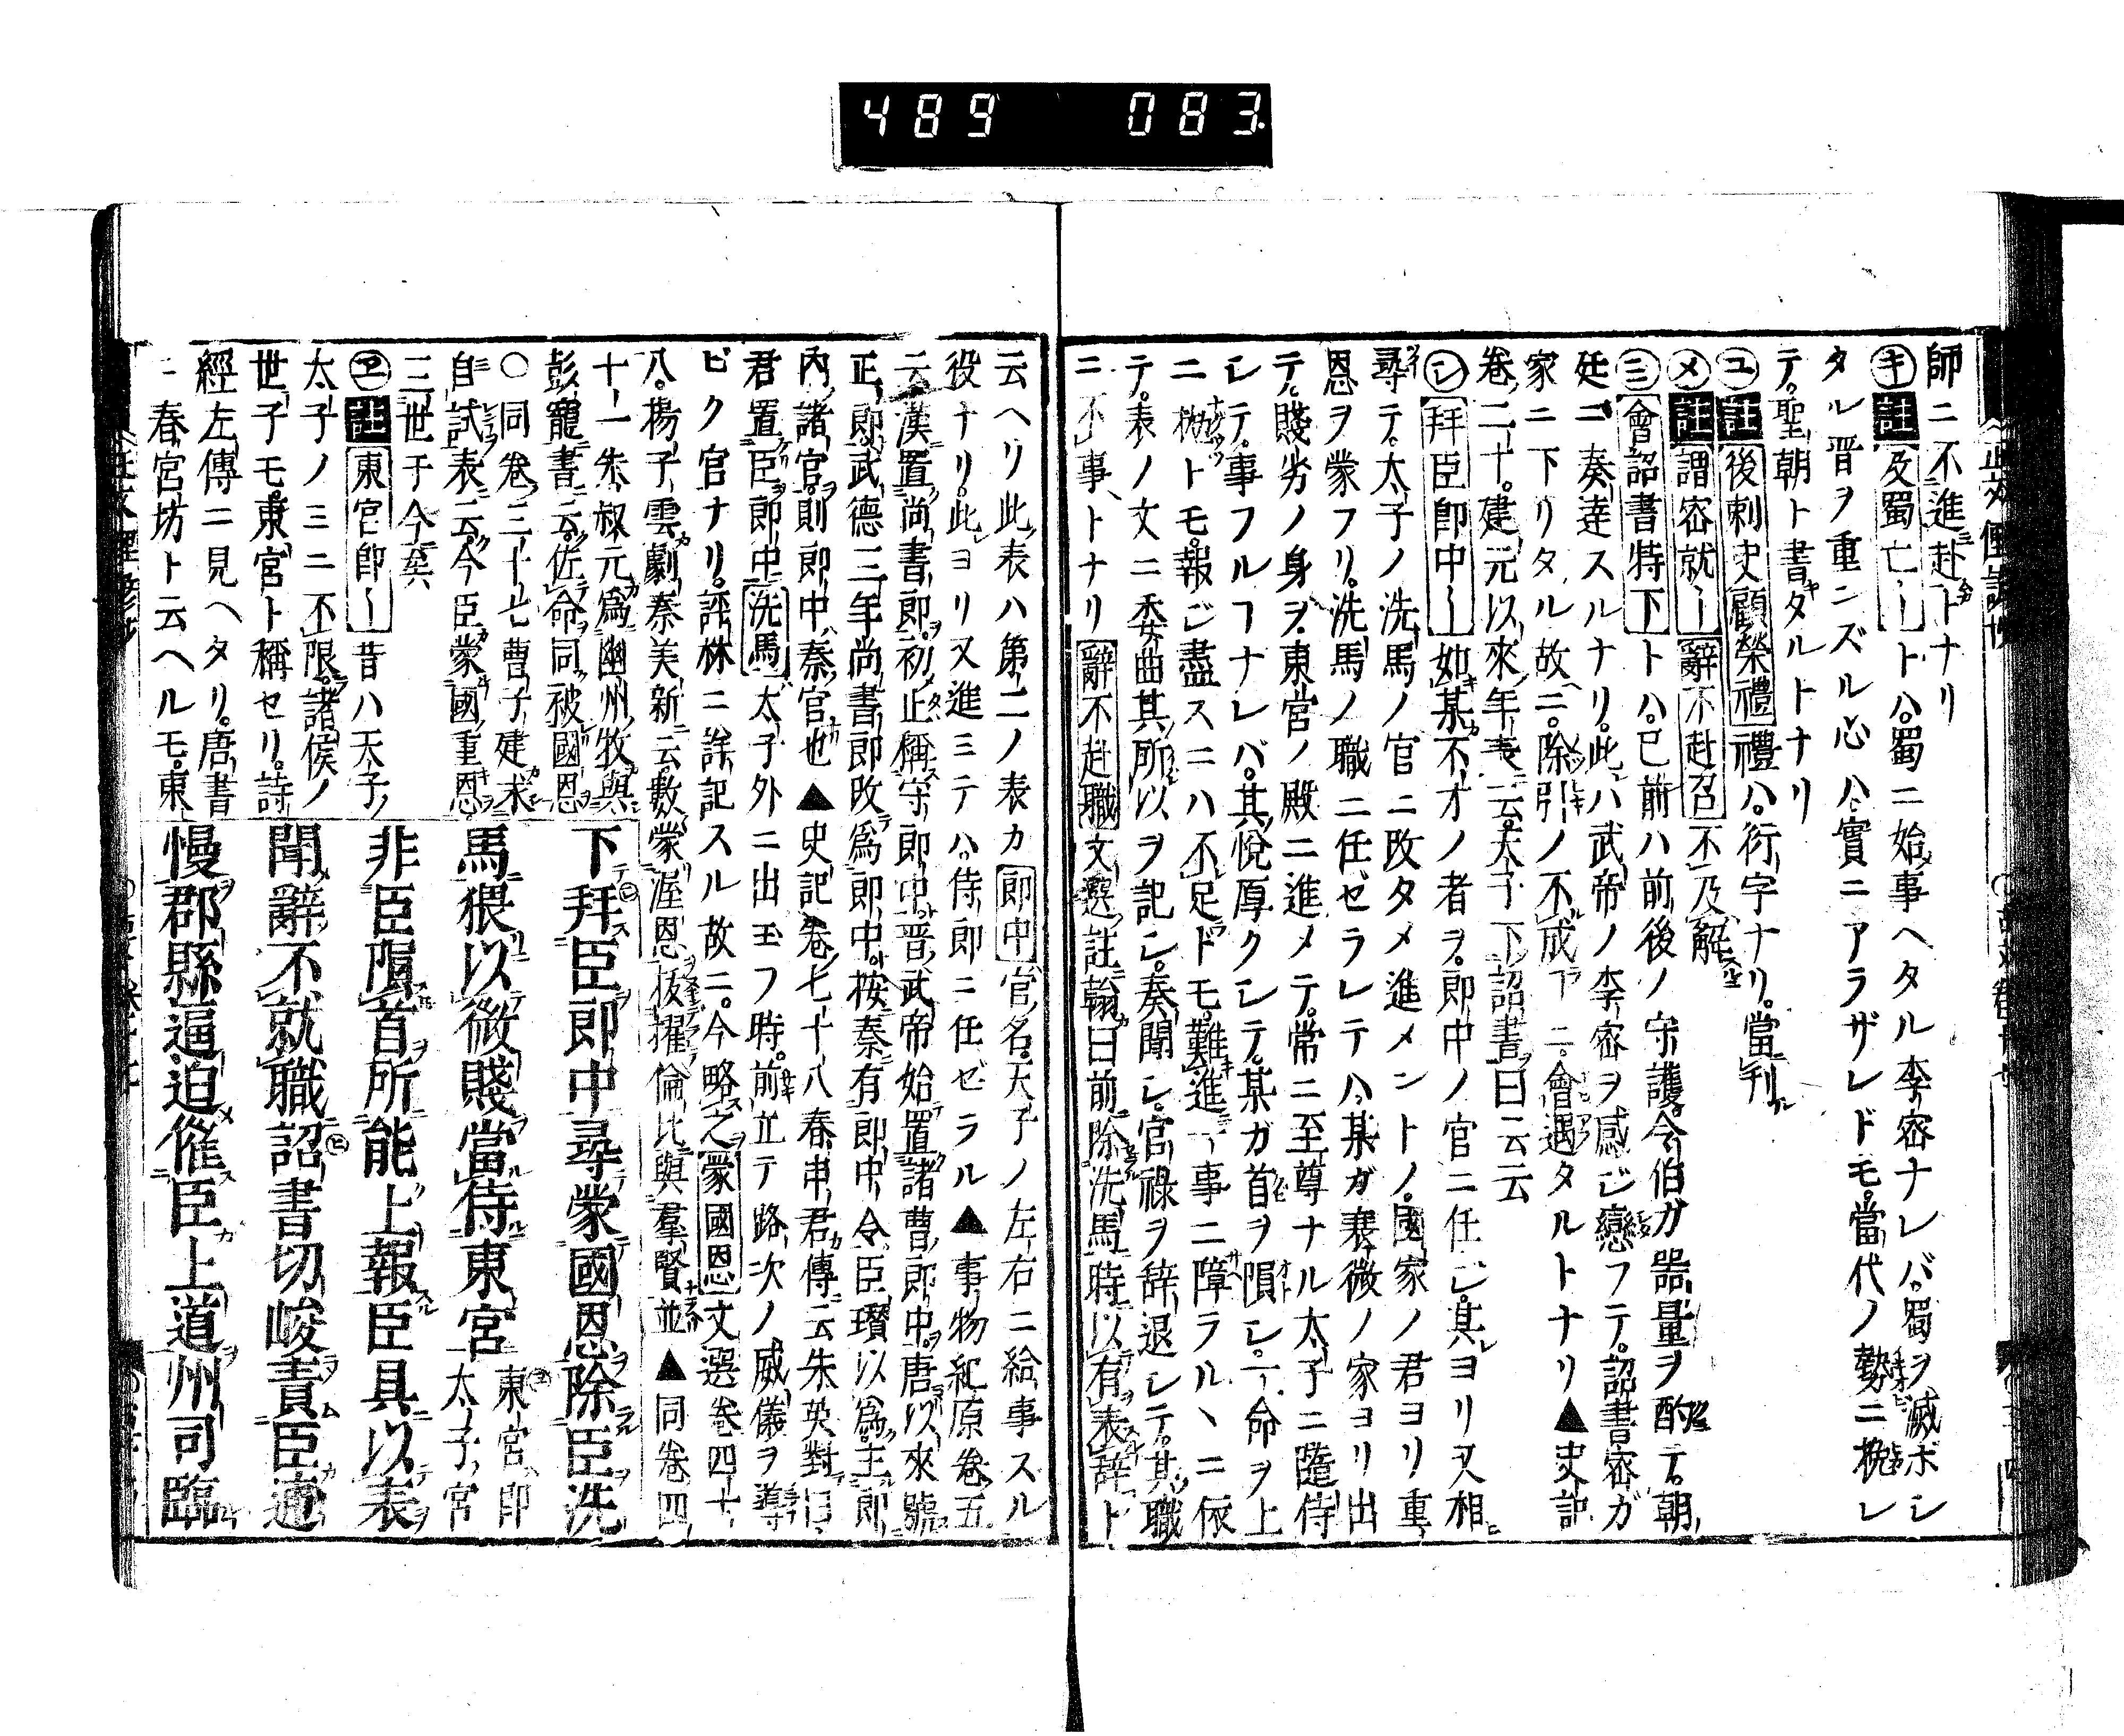 489 083
師ニ不進赴トナリ
㋖註及蜀亡〳〵トハ。蜀ニ始事ヘタル李密ナレバ。蜀ヲ滅ボシ
タル晋ヲ重ンズル心ハ實ニアラザレドモ。當代ノ勢ニ
テ。聖朝ト書タルトナリ
㋴註後刺史顧榮禮禮ハ。衍字ナリ。當刊
㋱註謂密就〳〵辭不赴召不及解
㋯會詔書特下トハ。已前ハ前後ノ守護。令伯ガ器量ヲ酌テ。朝
廷ニ奏達スルナリ。此ハ武帝ノ李密ヲ感ジ戀フテ。詔書密ガ
家ニ下リタル故ニ。除引ノ不成ヿニ。會遇タルトナリ▲史記
卷二十。建元以來年表云。天子下詔書曰云云
㋛拜臣郎中〳〵如某不才ノ者ヲ。郎中ノ官ニ任ジ。其ヨリ又相
尋テ。太子ノ洗馬ノ官ニ改タメ進メントノ。國家ノ君ヨリ重
恩ヲ蒙フリ。洗馬ノ職ニ任セラレテハ。某ガ衰微ノ家ヨリ出
テ。賤劣ノ身ヲ。東宮ノ殿ニ進メテ。常ニ至尊ナル太子ニ隨侍
シテ。事フルヿナレバ。其悅厚クシテ。某ガ首ヲ隕シ。一命ヲ上
ニ抛トモ。報ジ盡スニハ不足ドモ。難進ヿ事ニ障ラルヽニ依
テ。表ノ文ニ委曲其所以ヲ記シ。奏聞シ。官祿ヲ辞退シテ。其職
ニ不事トナリ辭不赴職文選註翰曰前除洗馬時以有表辞ト
云ヘリ此表ハ第二ノ表カ郎中官名。天子ノ左右ニ給事スル
役ナリ。此ヨリ又進ミテハ。侍郎ニ任ゼラル▲事物紀原卷五
云漢置尚書郎。初止稱守郎中。晋武帝始置諸曹郎中。唐以來號
正郎。武德三年尚書郎改爲郎中。按秦有郎中令。臣瓚以爲主郎
內諸官。則郎中秦官也▲史記卷七十八春申君傳云朱英對曰
君置臣郎中洗馬太子外ニ出玉フ時。前立テ路次ノ威儀ヲ導
ビク官ナリ。評林ニ詳記スル故ニ。今略之蒙國恩文選卷四十
八。揚子雲劇秦美新云數蒙渥恩拔擢倫比與羣賢並▲同卷四
十一朱叔元爲幽州牧與
彭寵書云。佐命同被國恩
〇同卷三十七曹子建求
自試表云。今臣蒙國重恩
三世于今矣
註東宮卽〳〵昔ハ天子ノ
太子ノミニ不限。諸侯ノ
世子モ東宮ト稱セリ。詩
經左傳ニ見ヘタリ。唐書
ニ春宮坊ト云ヘルモ。東
下拜臣郎中尋蒙國恩除臣洗
馬猥以微賤當侍東宮東宮卽太子宮
非臣隕首所能上報臣具以表
聞辭不就職詔書切峻責臣逋
慢郡縣逼迫催臣上道州司臨